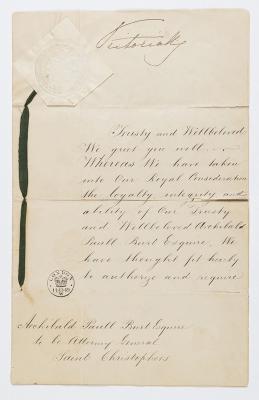 Victoria R
Trusty and Wellbeloved
We greet you well. ..
Whereas We have taken
into Our Royal Consideration
the loyalty, integrity and
ability of Our Trusty
and Wellbeloved Archibald
Paull Burt Esquire, We
have thought fit hereby
to authorize and require
LONDON
Archibald Paull Burt Esquire
to be Attorney General
Saint Christophers